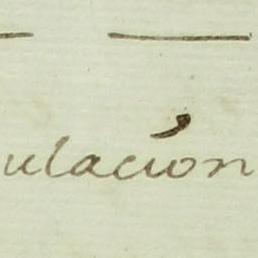 ulación